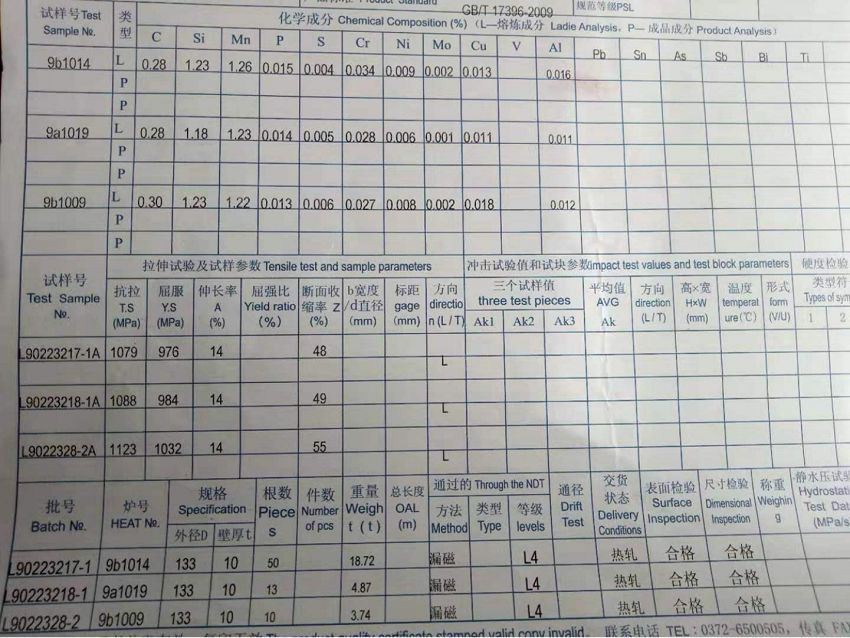 Product Standard GB/T 17396-2009 规范等级PSL
试样号Test Sample №. 类型 化学成分 Chemical Composition (%)(L—熔炼成分 Ladie Analysis, P—成品成分 Product Analysis)
C Si Mn P S Cr Ni Mo Cu V Al Pb Sn As Sb Bi Ti
9b1014 L 0.28 1.23 1.26 0.015 0.004 0.034 0.009 0.002 0.013 0.016
P
P
9a1019 L 0.28 1.18 1.23 0.014 0.005 0.028 0.006 0.001 0.011 0.011
P
P
9b1009 L 0.30 1.23 1.22 0.013 0.006 0.027 0.008 0.002 0.018 0.012
P
P
试样号 Test Sample №. 拉伸试验及试样参数 Tensile test and sample parameters 冲击试验值和试块参数impact test values and test block parameters 硬度检验
抗拉 T.S (MPa) 屈服 Y.S (MPa) 伸长率 A (%) 屈强比 Yield ratio (%) 断面收缩率 Z (%) b宽度/d直径 (mm) 标距 gage (mm) 方向 direction (L/T) 三个试样值 three test pieces Ak1 Ak2 Ak3 平均值 AVG Ak 方向 direction (L/T) 高×宽 H×W (mm) 温度 temperature(℃) 形式 form (V/U) 类型符 Types of sym 1 2
L90223217-1A 1079 976 14 48 L
L90223218-1A 1088 984 14 49 L
L9022328-2A 1123 1032 14 55 L
批号 Batch №. 炉号 HEAT №. 规格 Specification 外径D 壁厚t 根数 Pieces 件数 Number of pcs 重量 Weight (t) 总长度 OAL (m) 通过的 Through the NDT 方法 Method 类型 Type 等级 levels 通径 Drift Test 交货状态 Delivery Conditions 表面检验 Surface Inspection 尺寸检验 Dimensional Inspection 称重 Weighing 静水压试验 Hydrostati Test Data (MPa/s
L90223217-1 9b1014 133 10 50 18.72 漏磁 L4 热轧 合格 合格
L90223218-1 9a1019 133 10 13 4.87 漏磁 L4 热轧 合格 合格
L9022328-2 9b1009 133 10 10 3.74 漏磁 L4 热轧 合格 合格
product quality certificate stamped valid copy invalid. 联系电话 TEL:0372-6500505, 传真 FA